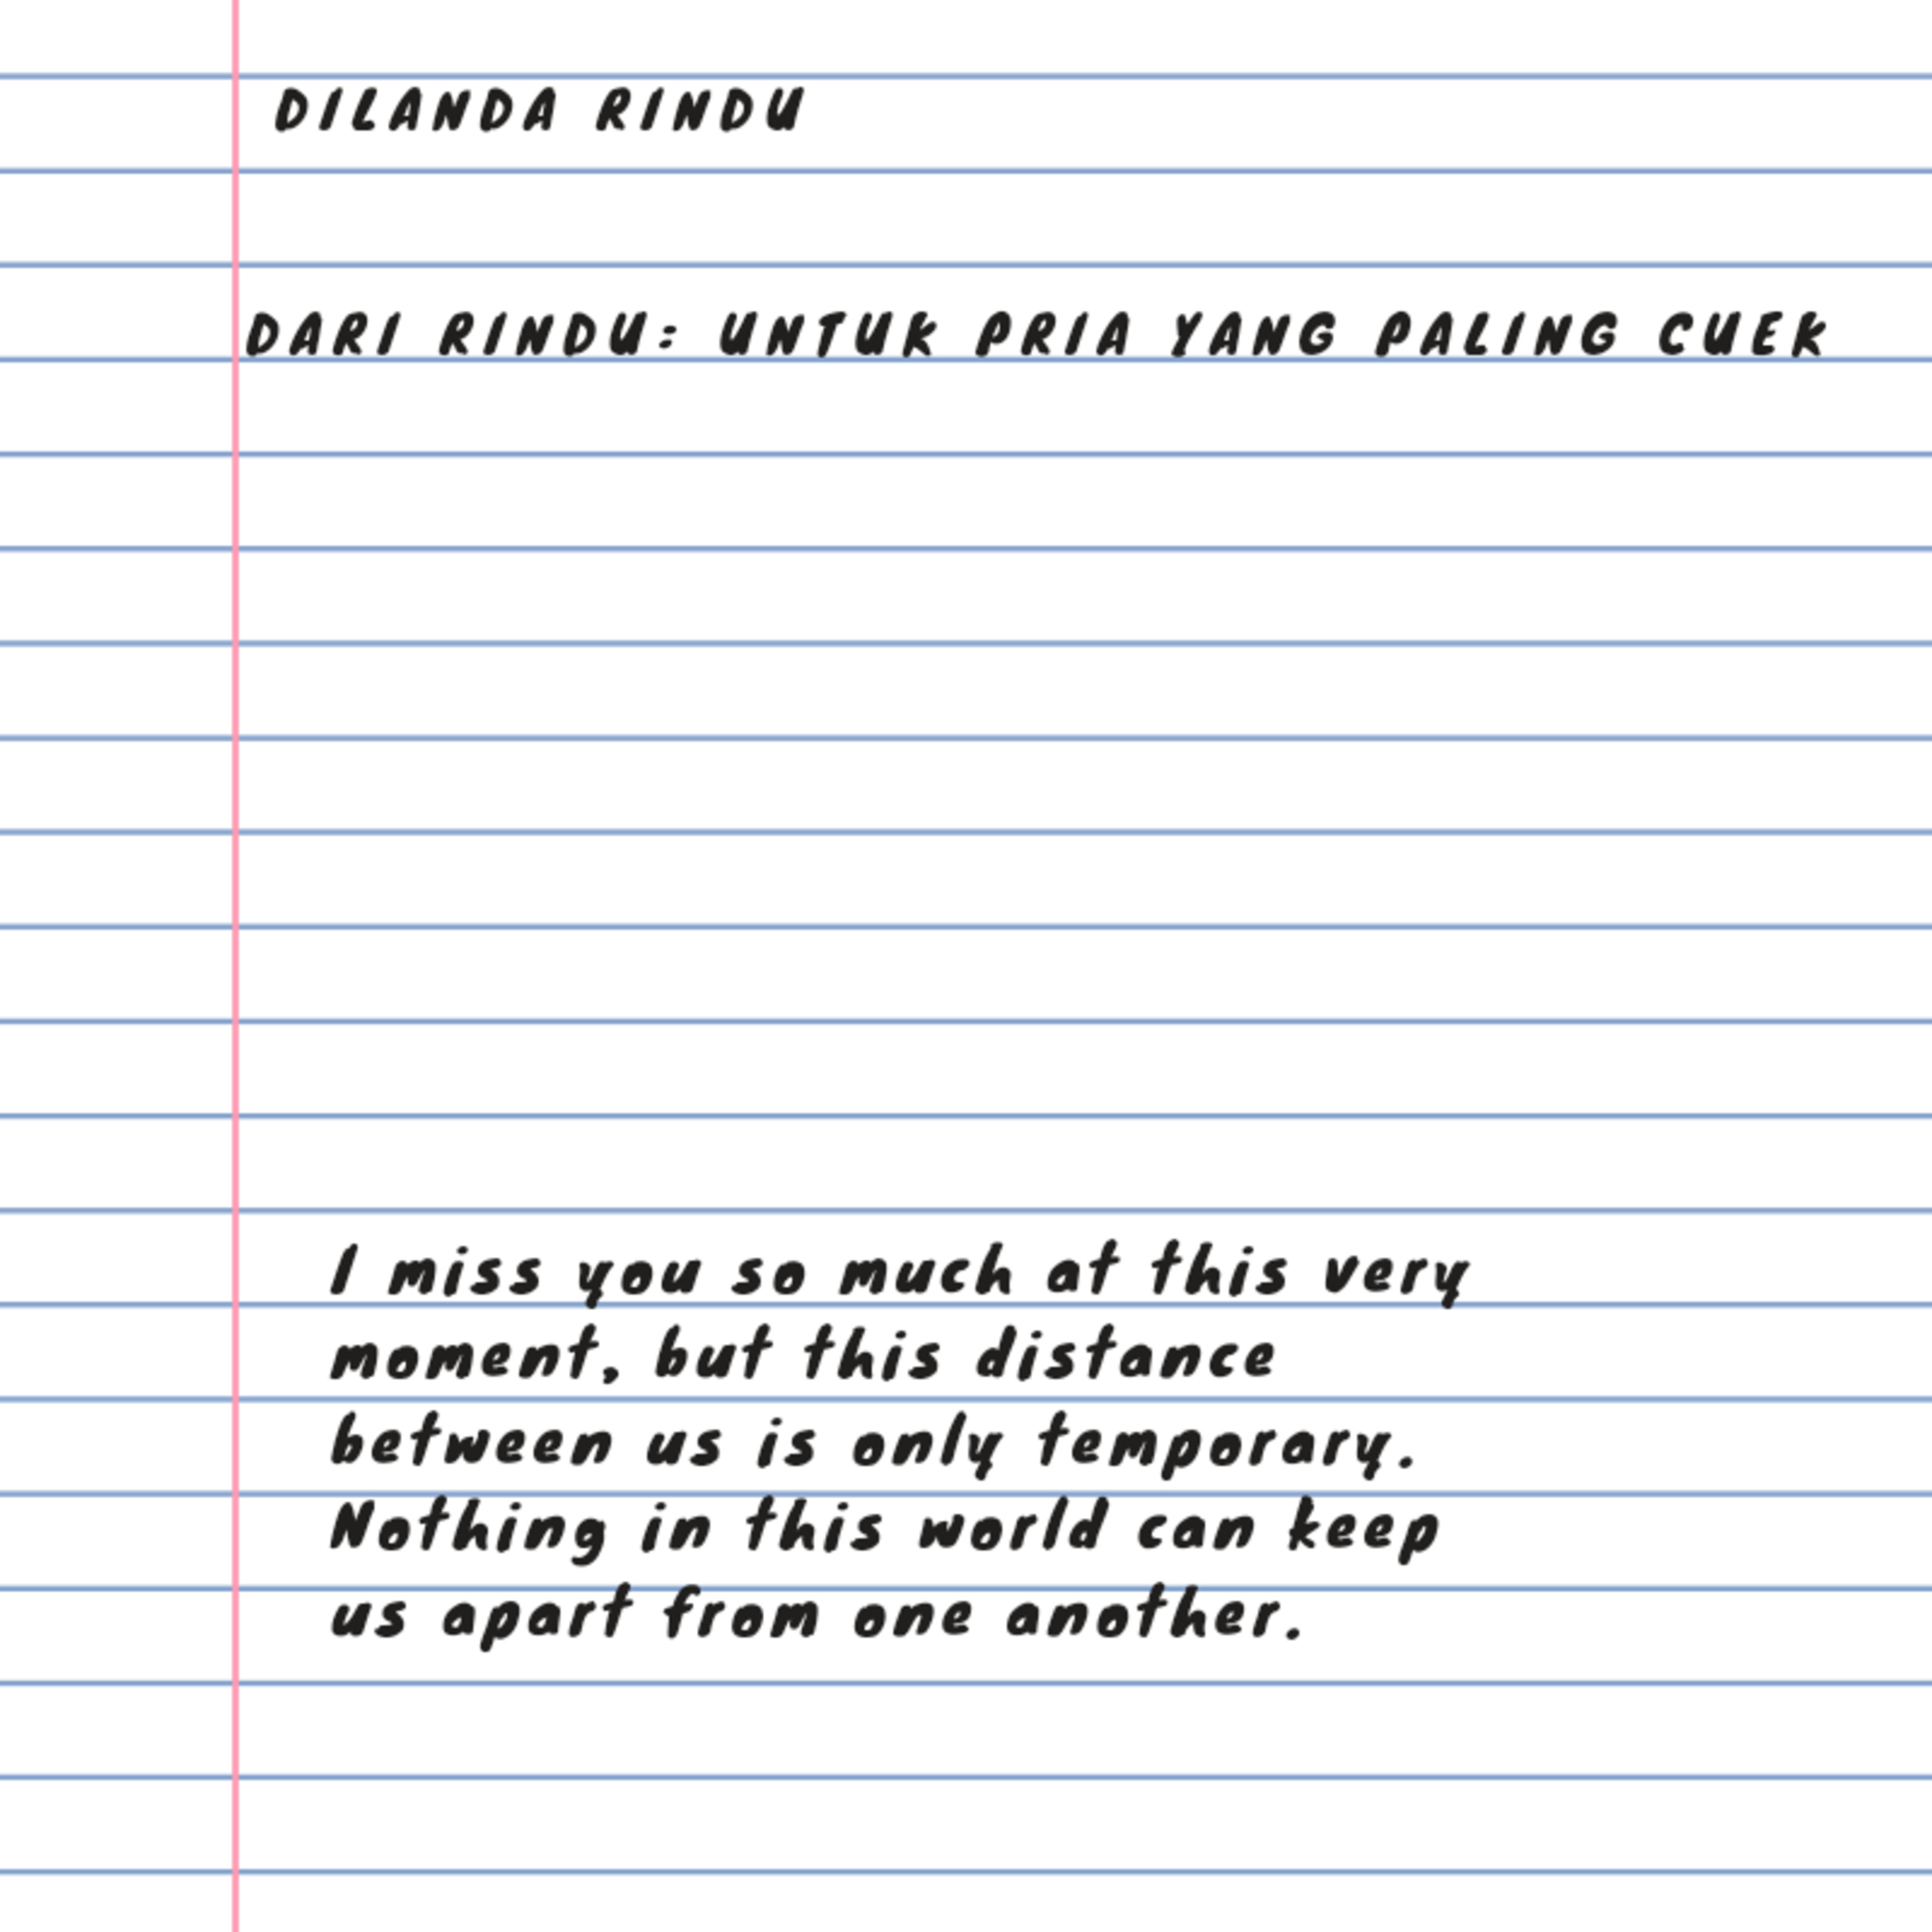 DILANDA RINDU
DARI RINDU: UNTUK PRIA YANG PALING CUEK
I miss you so much at this very
moment, but this distance
between us is only temporary.
Nothing in this world can keep
us apart from one another.